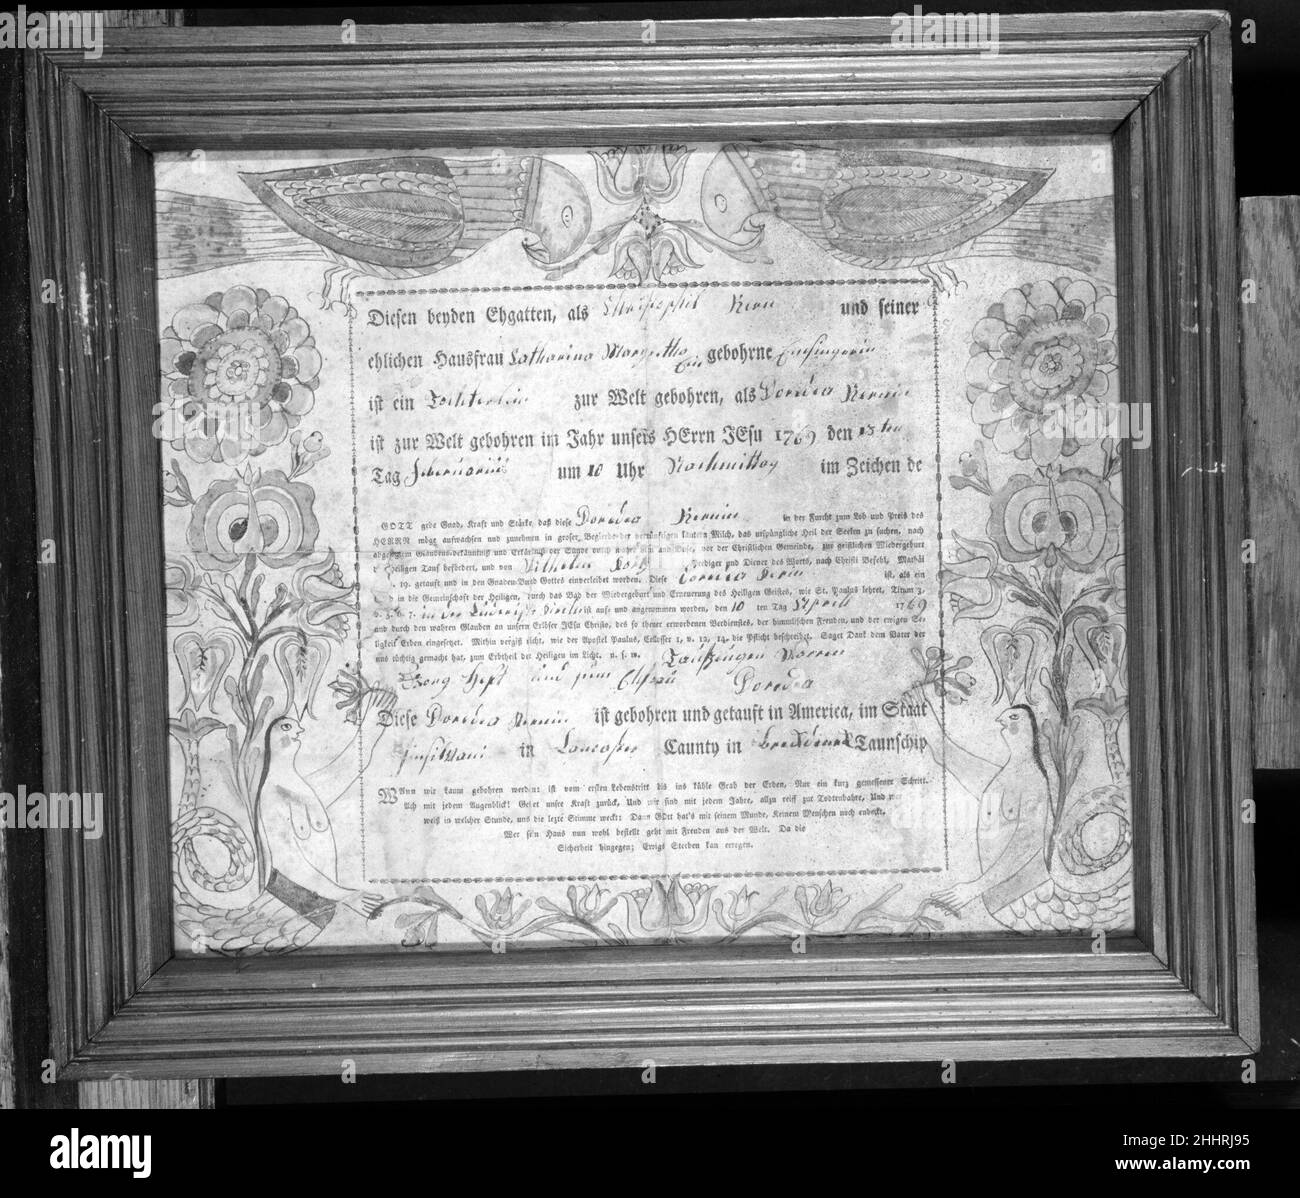 Diesen beyden Ehgatten, als Kern und seiner
ehlichen Hausfrau Catharina Margretha gebohrne
ist ein Tochterlein zur Welt gebohren, als Doredea Kernin
ist zur Welt gebohren im Jahr unsers HErrn JEsu 1769 den 13ten
Tag Februarius um 10 Uhr Nachmittag im Zeichen de
GOTT gebe Gnad, Kraft und Stärke, daß diese Doredea Kernin in der Furcht zum Lob und Preis des
HERRN möge aufwachsen und zunehmen in groser Begierde der vernünftigen lautern Milch, das ursprüngliche Heil der Seelen zu suchen, nach
abgelegtem Glaubens-bekänntniß und Erklärung der Sünde durch und Buse, vor der Christlichen Gemeinde, zur geistlichen Wiedergeburt
Heiligen Tauf befördert, und von Wilhelm Prediger und Diener des Worts, nach Christi Befehl, Matthäi
19. getauft und in den Gnaden-Bund Gottes einverleibet worden. Diese Doredea Kernin ist, als ein
in die Gemeinschaft der Heiligen, durch das Bad der Wiedergeburt und Erneuerung des Heiligen Geistes, wie St. Paulus lehret, Titum 3,
v. 5. 6. 7. in der Kirch ist aus und angenommen worden, den 10 ten Tag April 1769
und durch den wahren Glauben an unsern Erlöser JEsu Christo, des so theuer erworbenen Verdienstes, der himmlischen Freuden, und der ewigen Se-
ligkeit Erben eingesetzt. Mithin vergiß nicht, wie der Apostel Paulus, Colosser 1, v. 12, 14, die Pflicht beschreibet. Saget Dank dem Vater der
uns tüchtig gemacht hat, zum Erbtheil der Heiligen im Licht, u. s. w. Taufzeugen Waren
und sein Ehfrau Doredea
Diese Doredea Kernin ist gebohren und getauft in America, im Staat
in Lancaster Caunty in Taunschip
WAnn wir kaum gebohren werden: ist vom ersten Lebenstritt bis ins kühle Grab der Erden, Nur ein kurz gemessener Schritt.
Ach mit jedem Augenblick! Gehet unsre Kraft zurück, Und wir sind mit jedem Jahre, allzu reiff zur Todtenbahre, Und wer
weiß in welcher Stunde, uns die lezte Stimme weckt: Dann GOtt hat's mit seinem Munde, Keinem Menschen noch endeckt,
Wer sein Haus nun wohl bestellt geht mit Freuden aus der Welt. Da die
Sicherheit hingegen; Ewigs Sterben kan erregen.
alamy
Image ID: 2HHRJ95
www.alamy.com